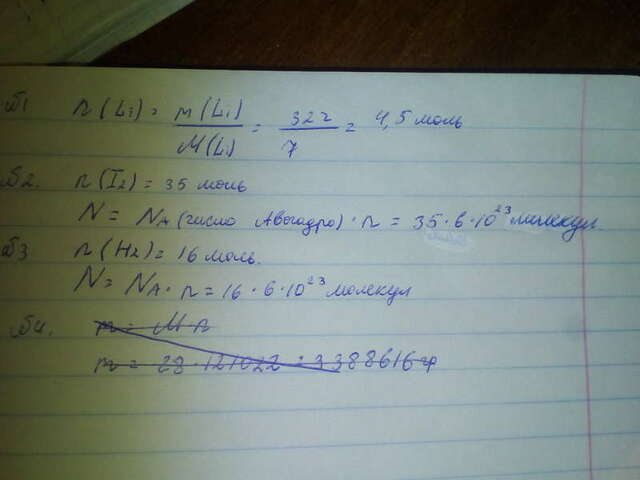 №1 n(Li) = m(Li) / M(Li) = 32г / 7 = 4,5 моль
№2. n(I2) = 35 моль
N = NA (число Авогадро) · n = 35 · 6 · 10^23 молекул.
№3 n(H2) = 16 моль.
N = NA · n = 16 · 6 · 10^23 молекул
№4. m = M · n
m = 28 · 121022 = 3388616 г